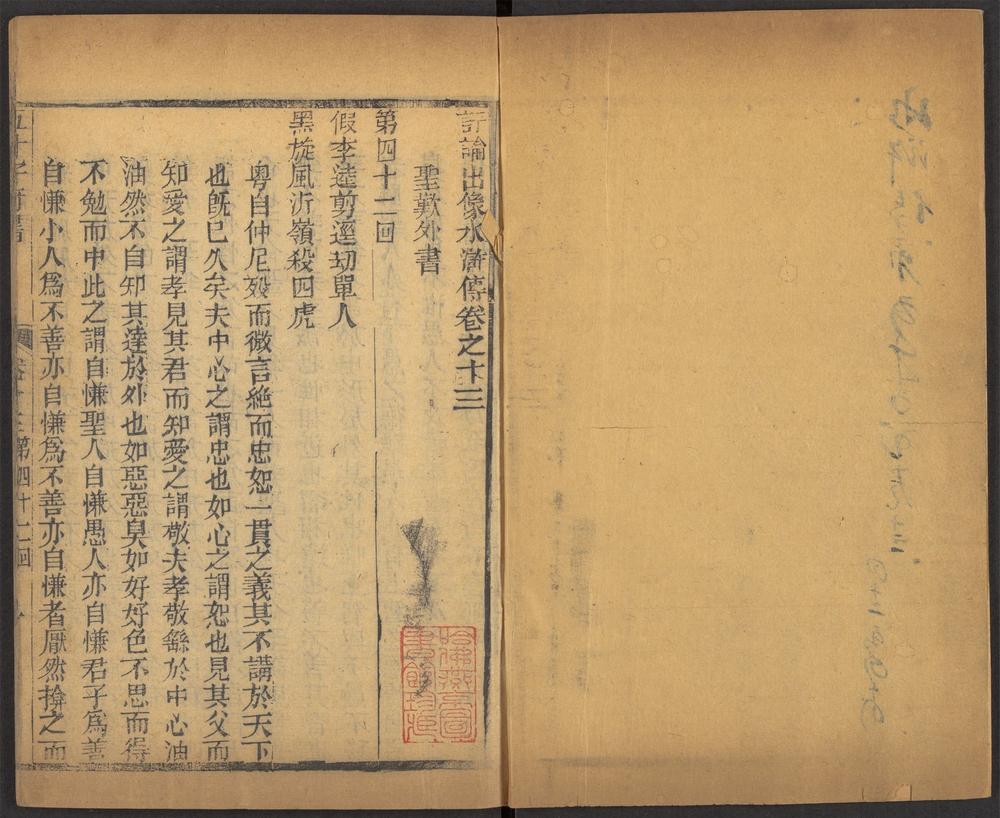 評論出像水滸傳卷之十三
聖歎外書
第四十二回
假李逵剪逕刼單人
黑旋風沂嶺殺四虎
粵自仲尼歿而微言絕而忠恕一貫之義其不講於天下
也旣已久矣夫中心之謂忠也如心之謂恕也見其父而
知愛之謂孝見其君而知愛之謂敬夫孝敬繇於中心油
油然不自知其達於外也如惡惡臭如好好色不思而得
不勉而中此之謂自慊聖人自慊愚人亦自慊君子爲善
自慊小人爲不善亦自慊爲不善亦自慊者厭然揜之而
五才子奇書
卷十三第四十二回
哈佛燕京圖書館珍藏